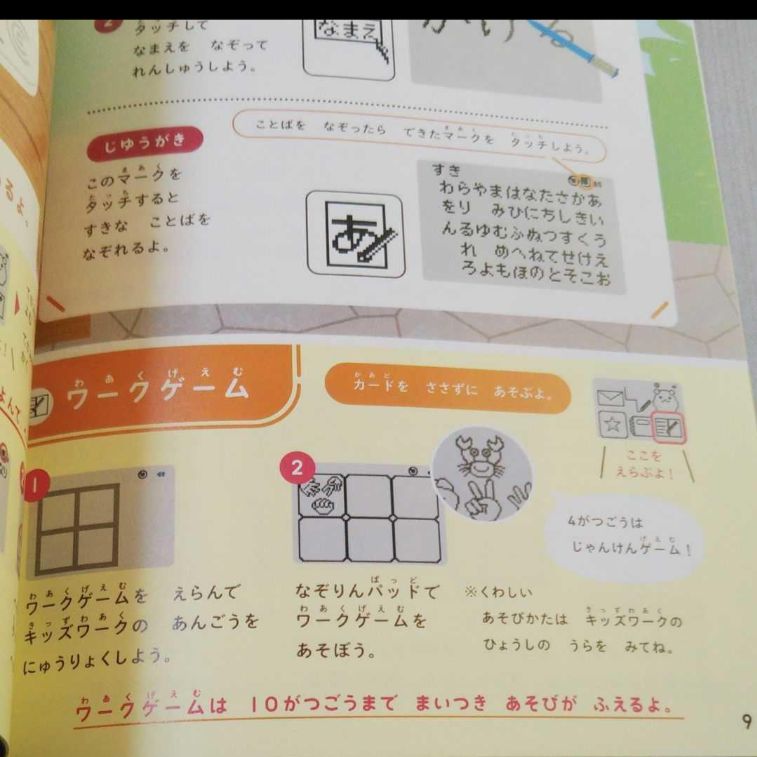 2
タッチして
なまえを なぞって
れんしゅうしよう。
なまえ
じゆうがき
ことばを なぞったら できたマークを タッチしよう。
このマークを
タッチすると
すきな ことばを
なぞれるよ。
あ
すき
わらやまはなたさかあ
をり みひにちしきい
んるゆむふぬつすくう
れ めへねてせけえ
ろよもほのとそこお
わあくげえむ
ワークゲーム
かあど
カードを ささずに あそぶよ。
ここを
えらぶよ!
1
2
4がつごうは
じゃんけんゲーム!
ワークゲームを えらんで
キッズワークの あんごうを
にゅうりょくしよう。
なぞりんパッドで
ワークゲームを
あそぼう。
※くわしい
あそびかたは キッズワークの
ひょうしの うらを みてね。
ワークゲームは 10がつごうまで まいつき あそびが ふえるよ。
9